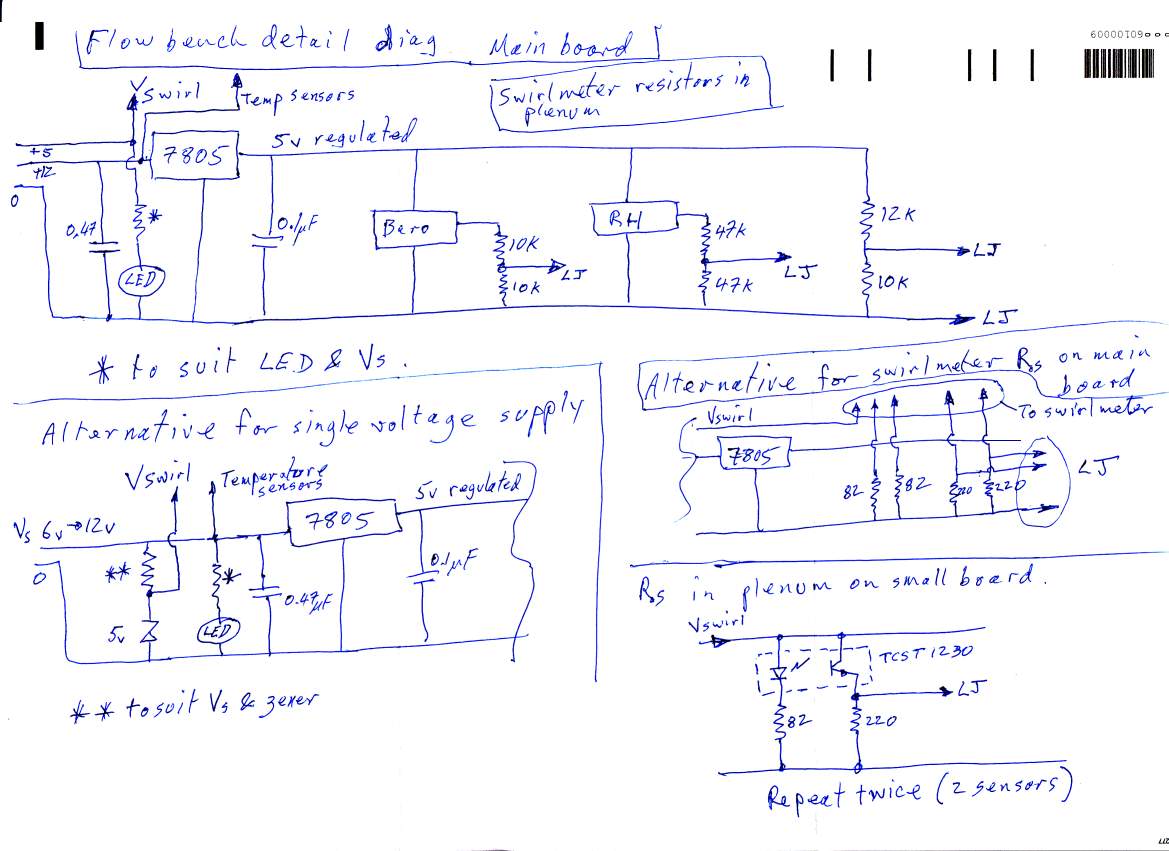 Flow bench detail diag Main board
60000109000
Swirlmeter resistors in
plenum
Vswirl
Temp sensors
5v regulated
+5
+12
0
7805
0.47
*
LED
0.1µF
Baro
10K
10K
LJ
RH
47K
47K
LJ
12K
10K
LJ
LJ
* to suit LED & Vs.
Alternative for single voltage supply
Vswirl
Temperature
sensors
5v regulated
Vs 6v→12v
0
7805
**
*
5v
LED
0.47µF
0.1µF
** to suit Vs & zener
Alternative for swirlmeter Rs on main
board
Vswirl
To swirlmeter
7805
82
82
220
220
LJ
Rs in plenum on small board.
Vswirl
TCST1230
LJ
82
220
Repeat twice (2 sensors)